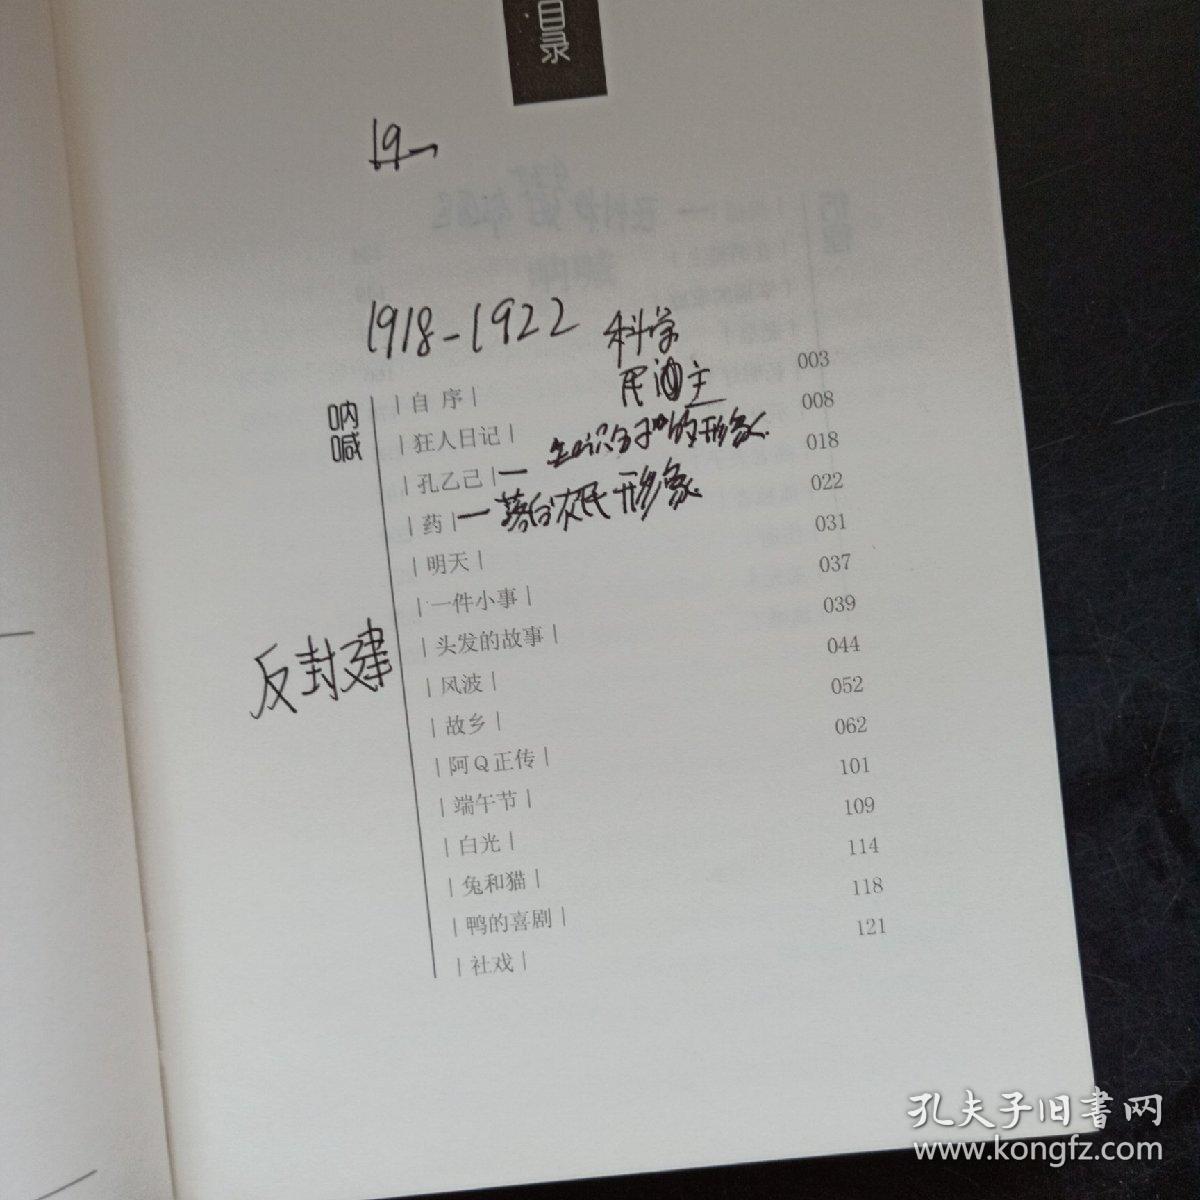 目录
19
1918-1922 科学
民主
呐喊
| 自 序 | 003
| 狂人日记 | 008
| 孔乙己 | 一 知识分子的形象 018
| 药 | 一 落后农民形象 022
| 明天 | 031
| 一件小事 | 037
| 头发的故事 | 039
反封建
| 风波 | 044
| 故乡 | 052
| 阿Q正传 | 062
| 端午节 | 101
| 白光 | 109
| 兔和猫 | 114
| 鸭的喜剧 | 118
| 社戏 | 121
孔夫子旧书网
www.kongfz.com